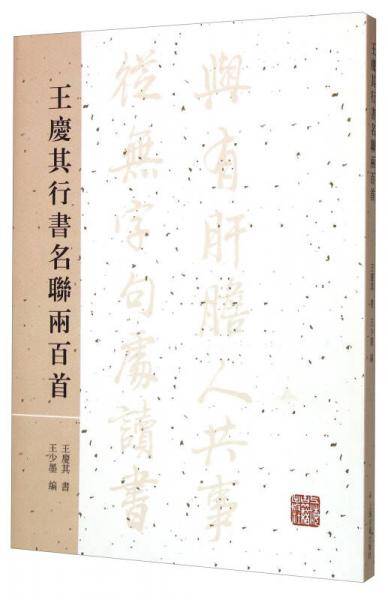 王慶其行書名聯兩百首
王慶其 書
王少墨 編
與有肝膽人共事
從無字句處讀書
王慶其行書名聯兩百首
王慶其 書 王少墨 編